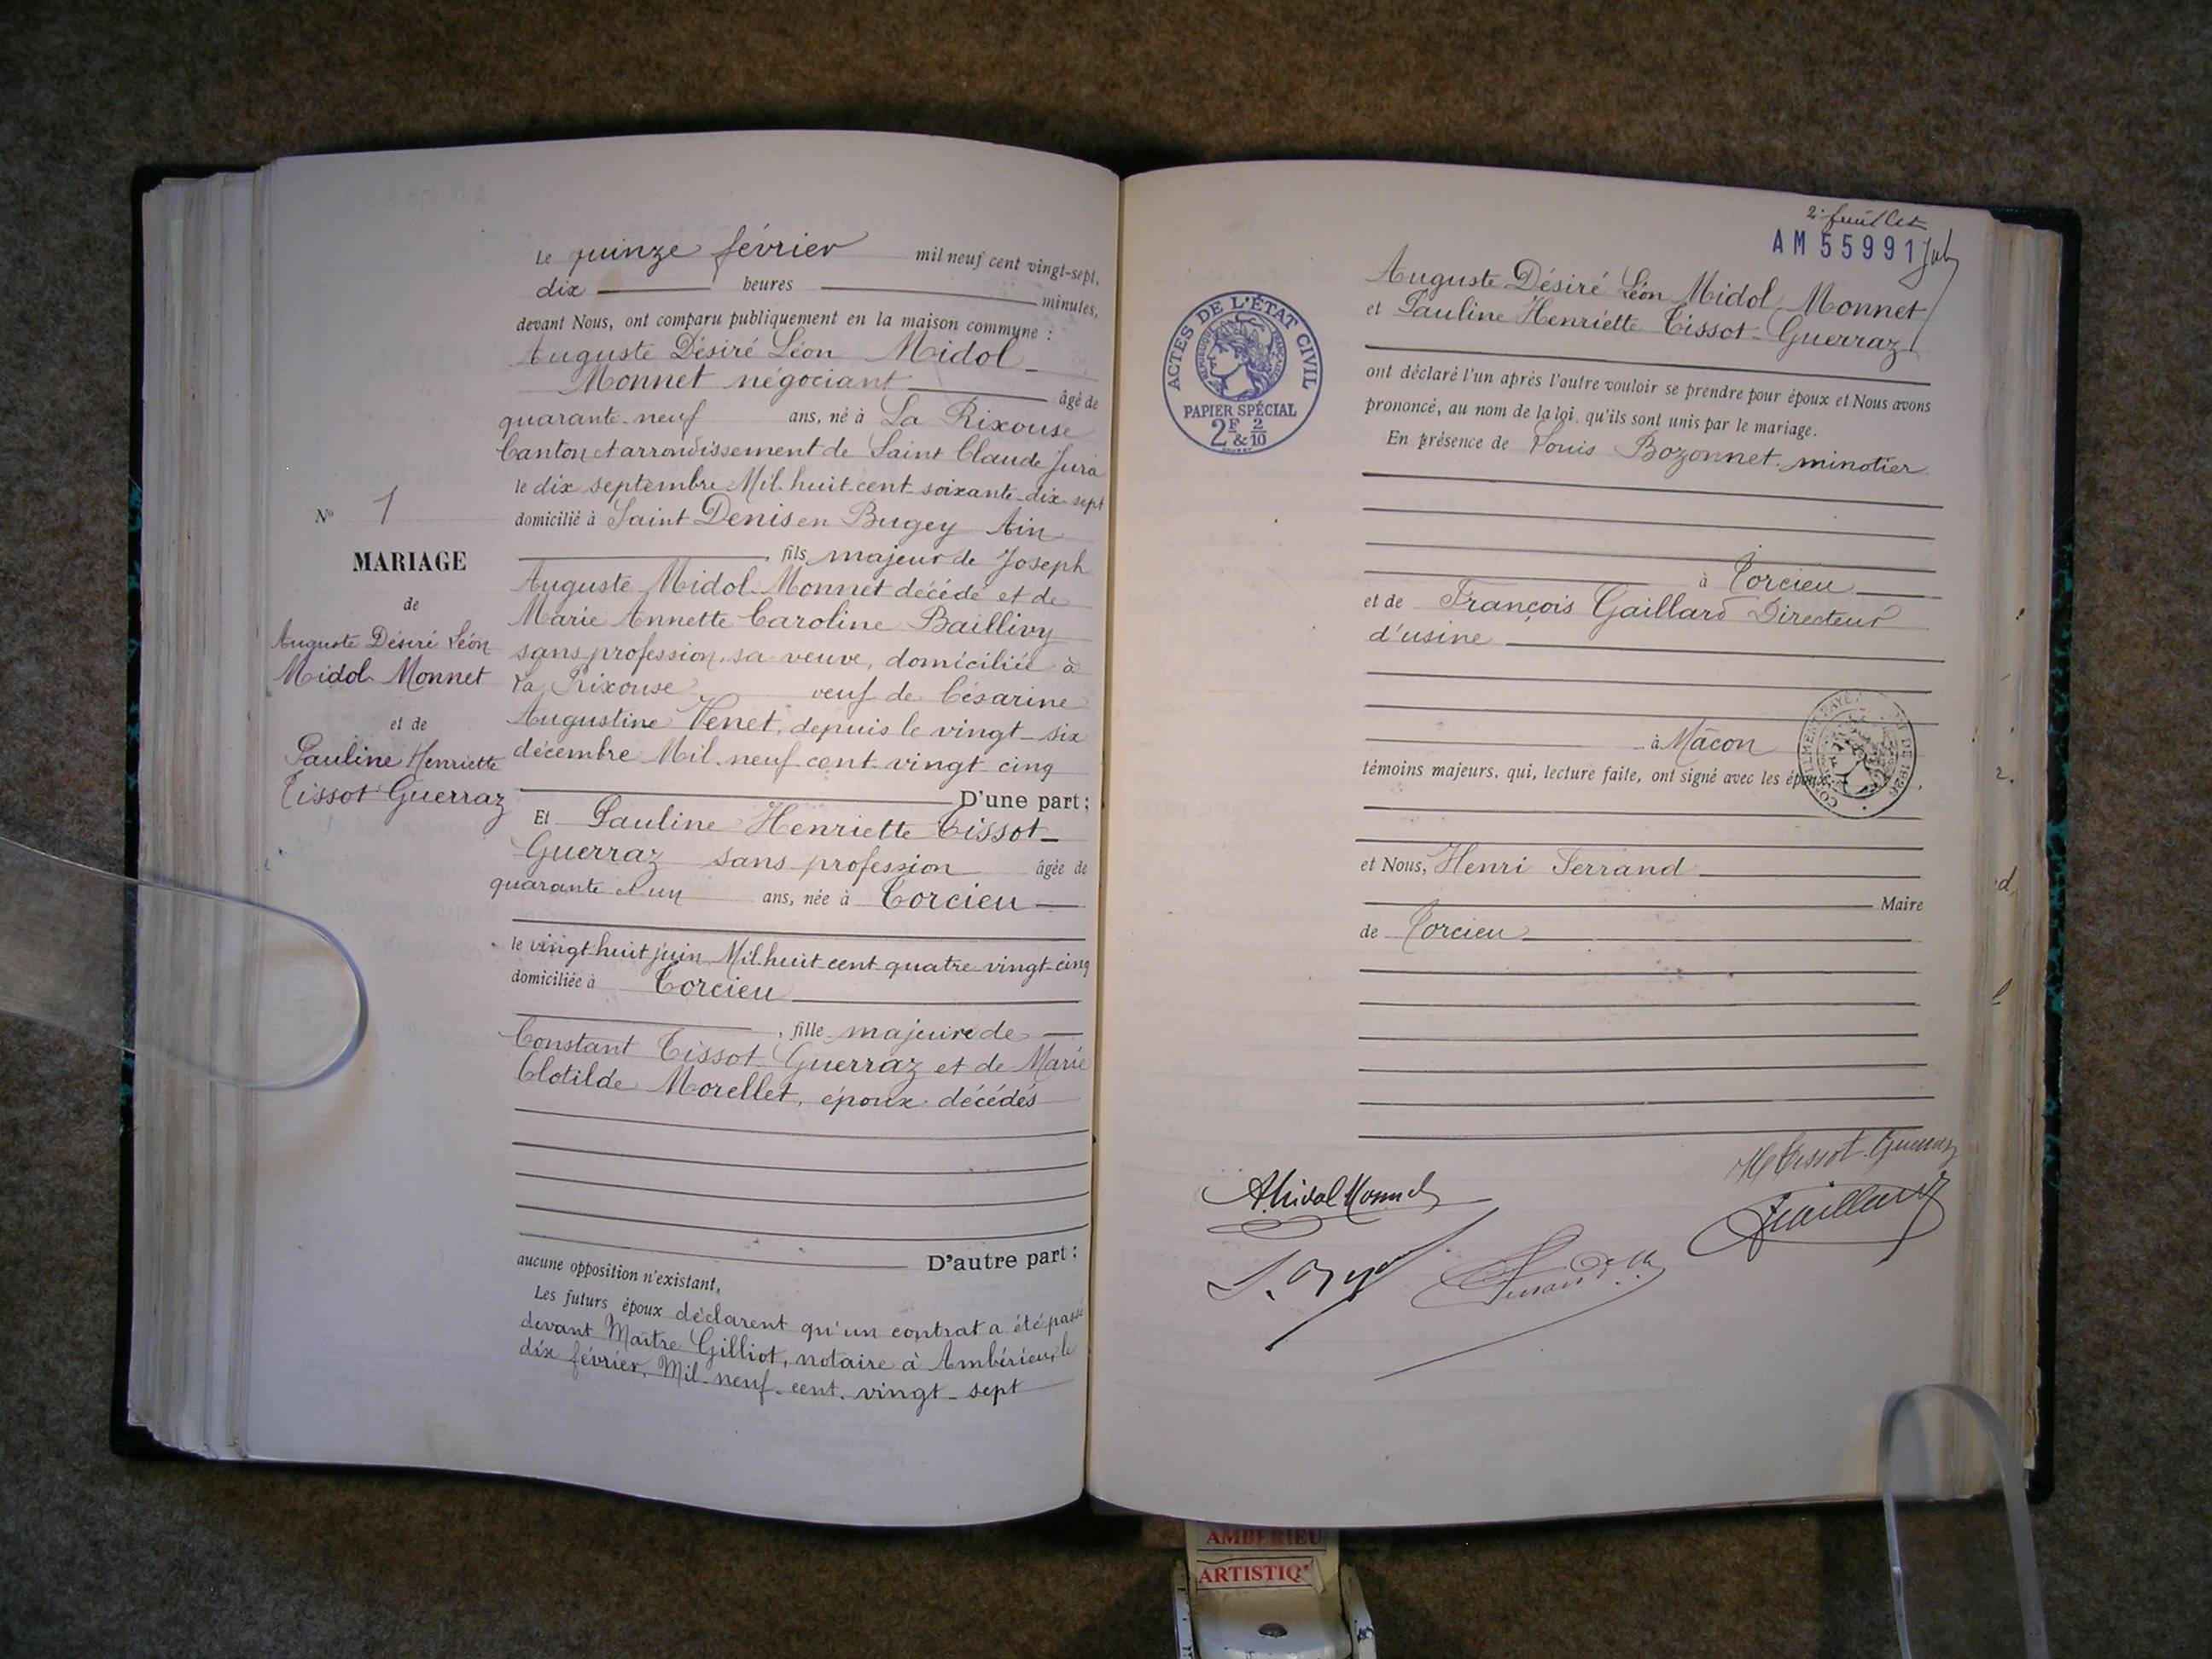 N° 1
MARIAGE
de
Auguste Désiré Léon
Midol-Monnet
et de
Pauline Henriette
Tissot-Guerraz
Le quinze février mil neuf cent vingt-sept,
dix heures minutes,
devant Nous, ont comparu publiquement en la maison commune :
Auguste Désiré Léon Midol-
Monnet négociant âgé de
quarante-neuf ans, né à La Rixouse
Canton et arrondissement de Saint Claude Jura
le dix septembre Mil-huit-cent-soixante-dix-sept
domicilié à Saint Denis en Bugey Ain
, fils majeur de Joseph
Auguste Midol-Monnet décédé et de
Marie Annette Caroline Baillivy
sans profession, sa veuve, domiciliée à
La Rixouse veuf de Césarine
Augustine Venet, depuis le vingt-six
décembre Mil-neuf-cent-vingt-cinq
D'une part ;
Et Pauline Henriette Tissot-
Guerraz sans profession âgée de
quarante et un ans, née à Torcieu
le vingt-huit juin Mil-huit-cent-quatre-vingt-cinq
domiciliée à Torcieu
, fille majeure de
Constant Tissot-Guerraz et de Marie
Clotilde Morellet, époux décédés
D'autre part ;
aucune opposition n'existant,
Les futurs époux déclarent qu'un contrat a été passé
devant Maître Gilliot, notaire à Ambérieu, le
dix février, Mil-neuf-cent-vingt-sept
2e feuillet
AM 55991
ACTES DE L'ÉTAT CIVIL
RÉPUBLIQUE FRANÇAISE
PAPIER SPÉCIAL
2F & 2/10
Auguste Désiré Léon Midol-Monnet
et Pauline Henriette Tissot-Guerraz
ont déclaré l'un après l'autre vouloir se prendre pour époux et Nous avons
prononcé, au nom de la loi, qu'ils sont unis par le mariage.
En présence de Louis Bozonnet minotier
à Torcieu
et de François Gaillard Directeur
d'usine
à Mâcon
témoins majeurs, qui, lecture faite, ont signé avec les époux
et Nous, Henri Ferrand
Maire
de Torcieu
A. Midol Monnet
H Tissot-Guerraz
Gaillard
AMBERIEU
ARTISTIQ